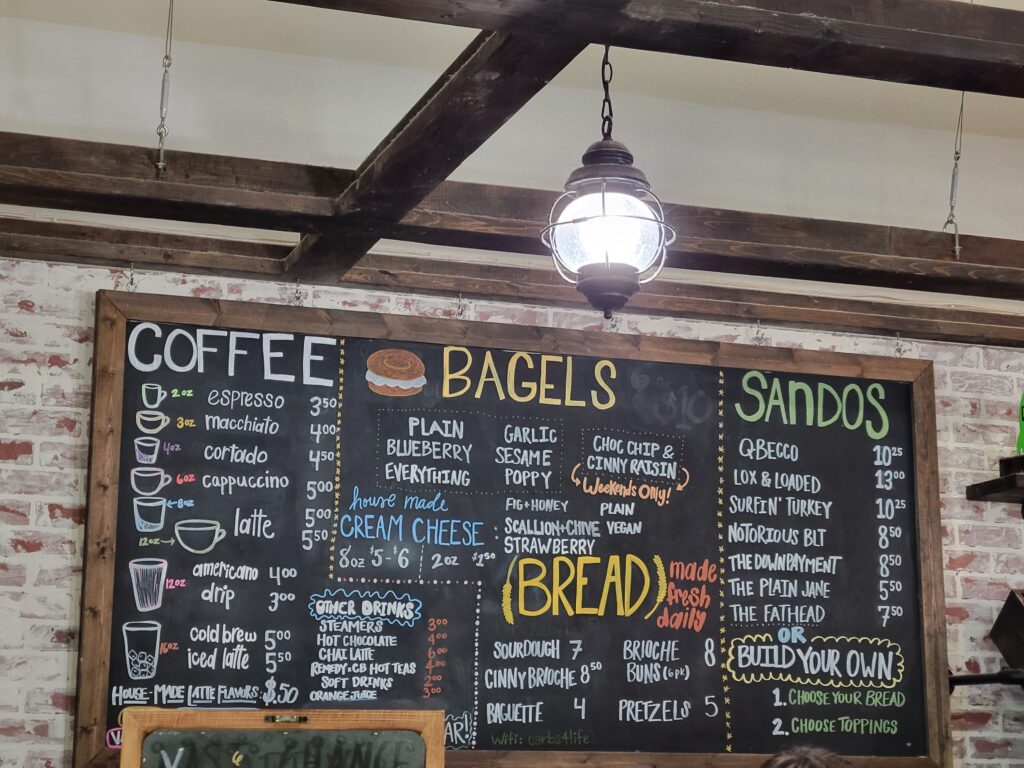 COFFEE
2oz espresso 3.50
3oz macchiato 4.00
4oz cortado 4.50
6oz cappuccino 5.00
8oz 5.00
12oz latte 5.50
12oz americano 4.00
drip 3.00
16oz cold brew 5.00
iced latte 5.50
HOUSE-MADE LATTE FLAVORS: $.50
OTHER DRINKS
STEAMERS 3.00
HOT CHOCOLATE
CHAI LATTE
REMEDY & CB HOT TEAS
SOFT DRINKS
ORANGE JUICE 3.00
AR!
BAGELS
PLAIN
BLUEBERRY
EVERYTHING
GARLIC
SESAME
POPPY
CHOC CHIP &
CINNY RAISIN
Weekends Only!
house made
CREAM CHEESE :
8oz $5-$6 2oz $1.50
FIG+HONEY PLAIN
SCALLION+CHIVE VEGAN
STRAWBERRY
BREAD
made
fresh
daily
SOURDOUGH 7
CINNY BRIOCHE 8.50
BAGUETTE 4
BRIOCHE 8
BUNS (6pk)
PRETZELS 5
Wifi: carbs4life
SANDOS
QBECCO 10.25
LOX & LOADED 13.00
SURFIN' TURKEY 10.25
NOTORIOUS BLT 8.50
THE DOWNPAYMENT 8.50
THE PLAIN JANE 5.50
THE FATHEAD 7.50
OR
BUILD YOUR OWN
1. CHOOSE YOUR BREAD
2. CHOOSE TOPPINGS